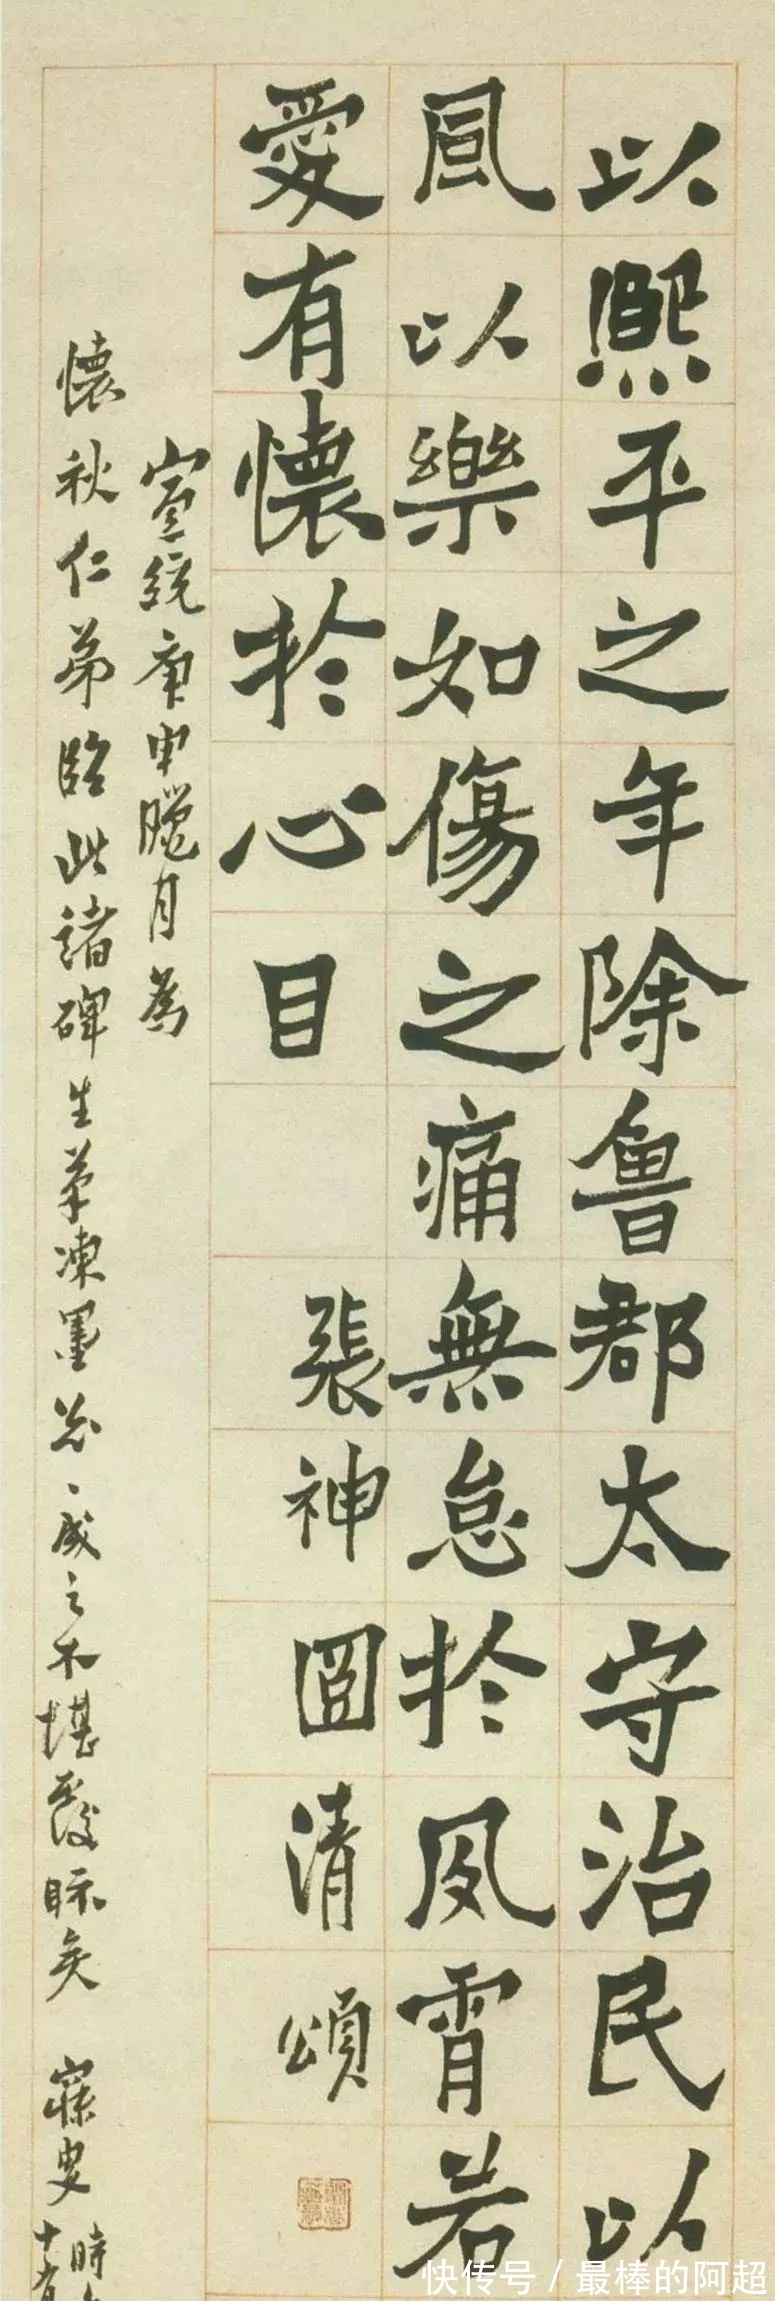 以熈平之年除魯郡太守治民以
風以樂如傷之痛無怠於夙霄若
愛有懷於心目
張神囧清頌
宣統庚申臘月為
懷秋仁弟臨此諸碑生筆凍墨忽〻成之不堪覆眎矣 寐叟
時
十有
快传号 / 最棒的阿超